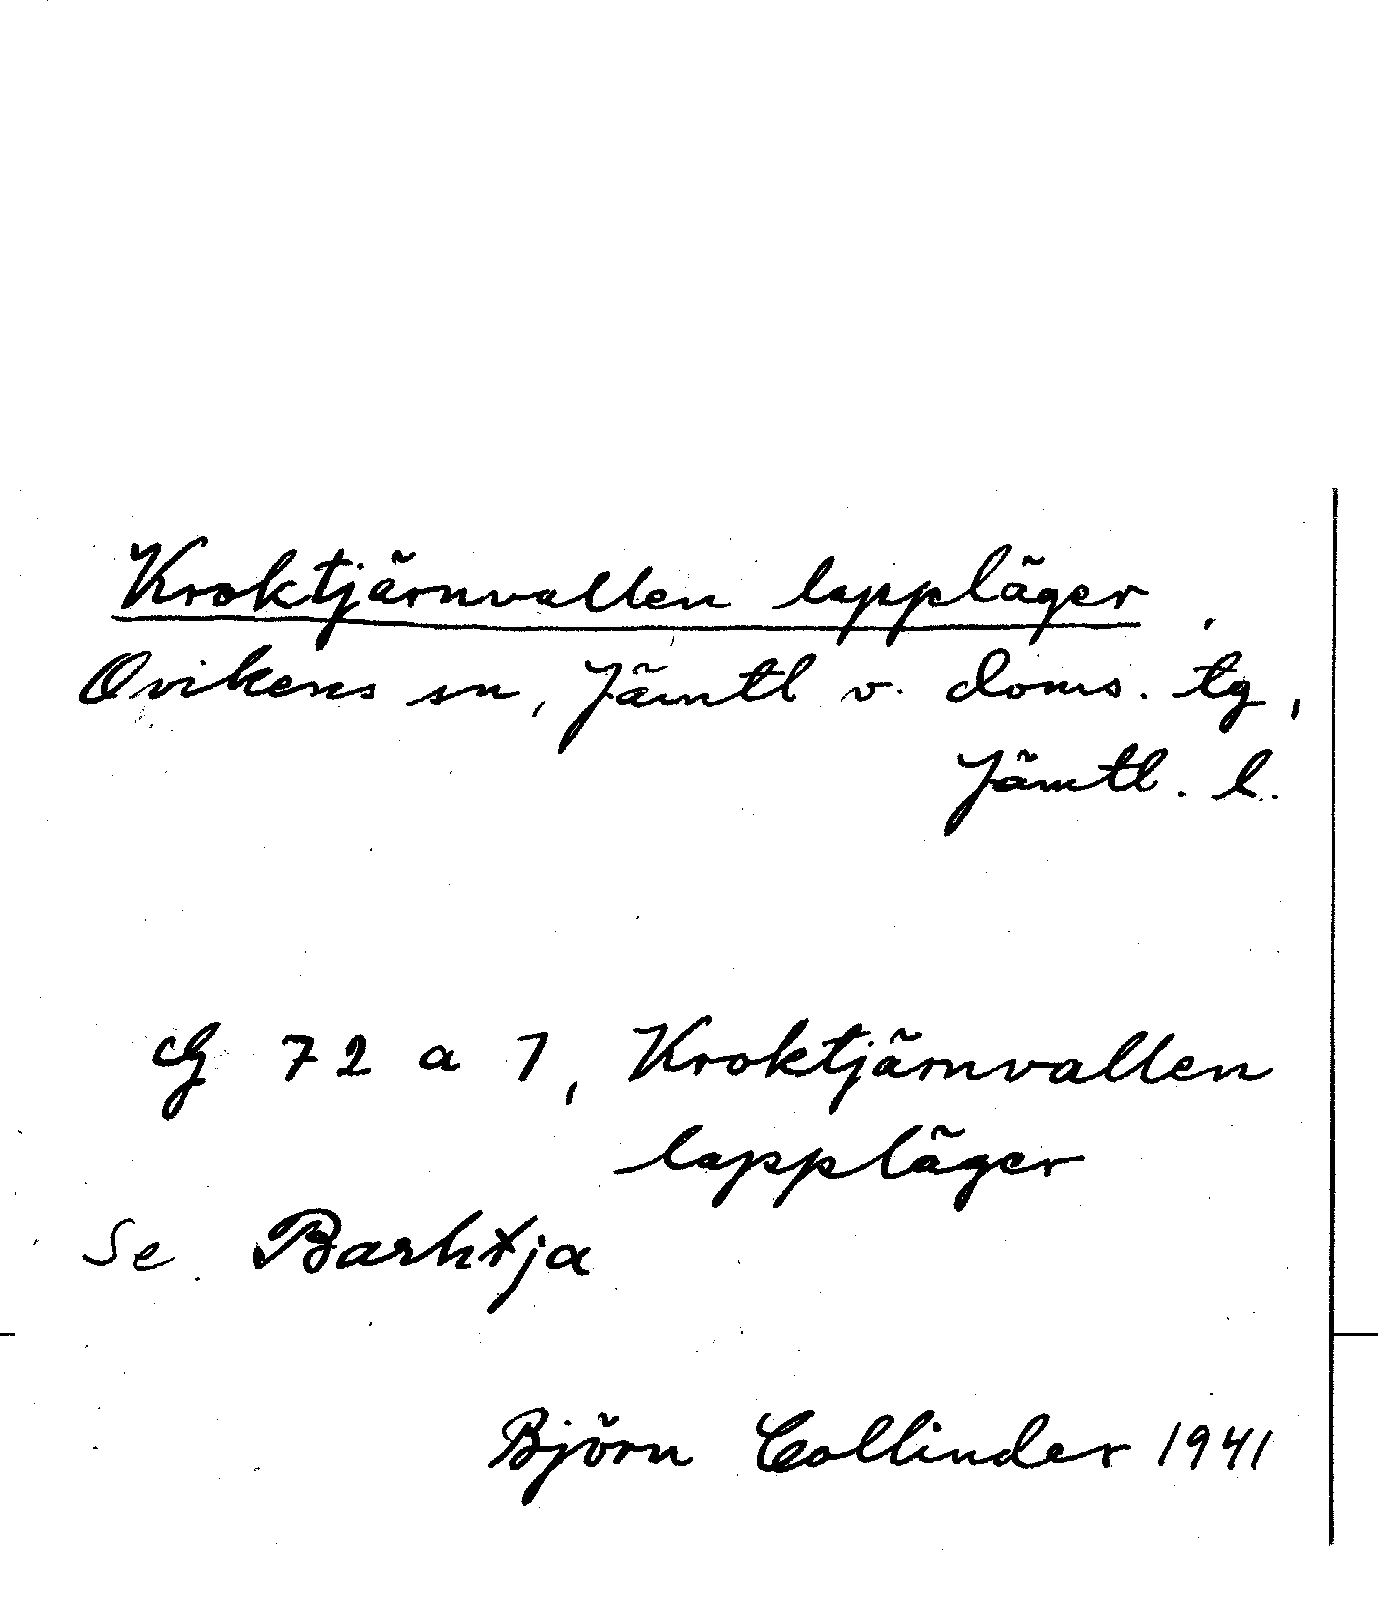 Kroktjärnvallen lappläger.
Ovikens sn, Jämtl v. doms. tg,
Jämtl. l.
G 72 a 7, Kroktjärnvallen
lappläger
Se
Björn Collinder 1941